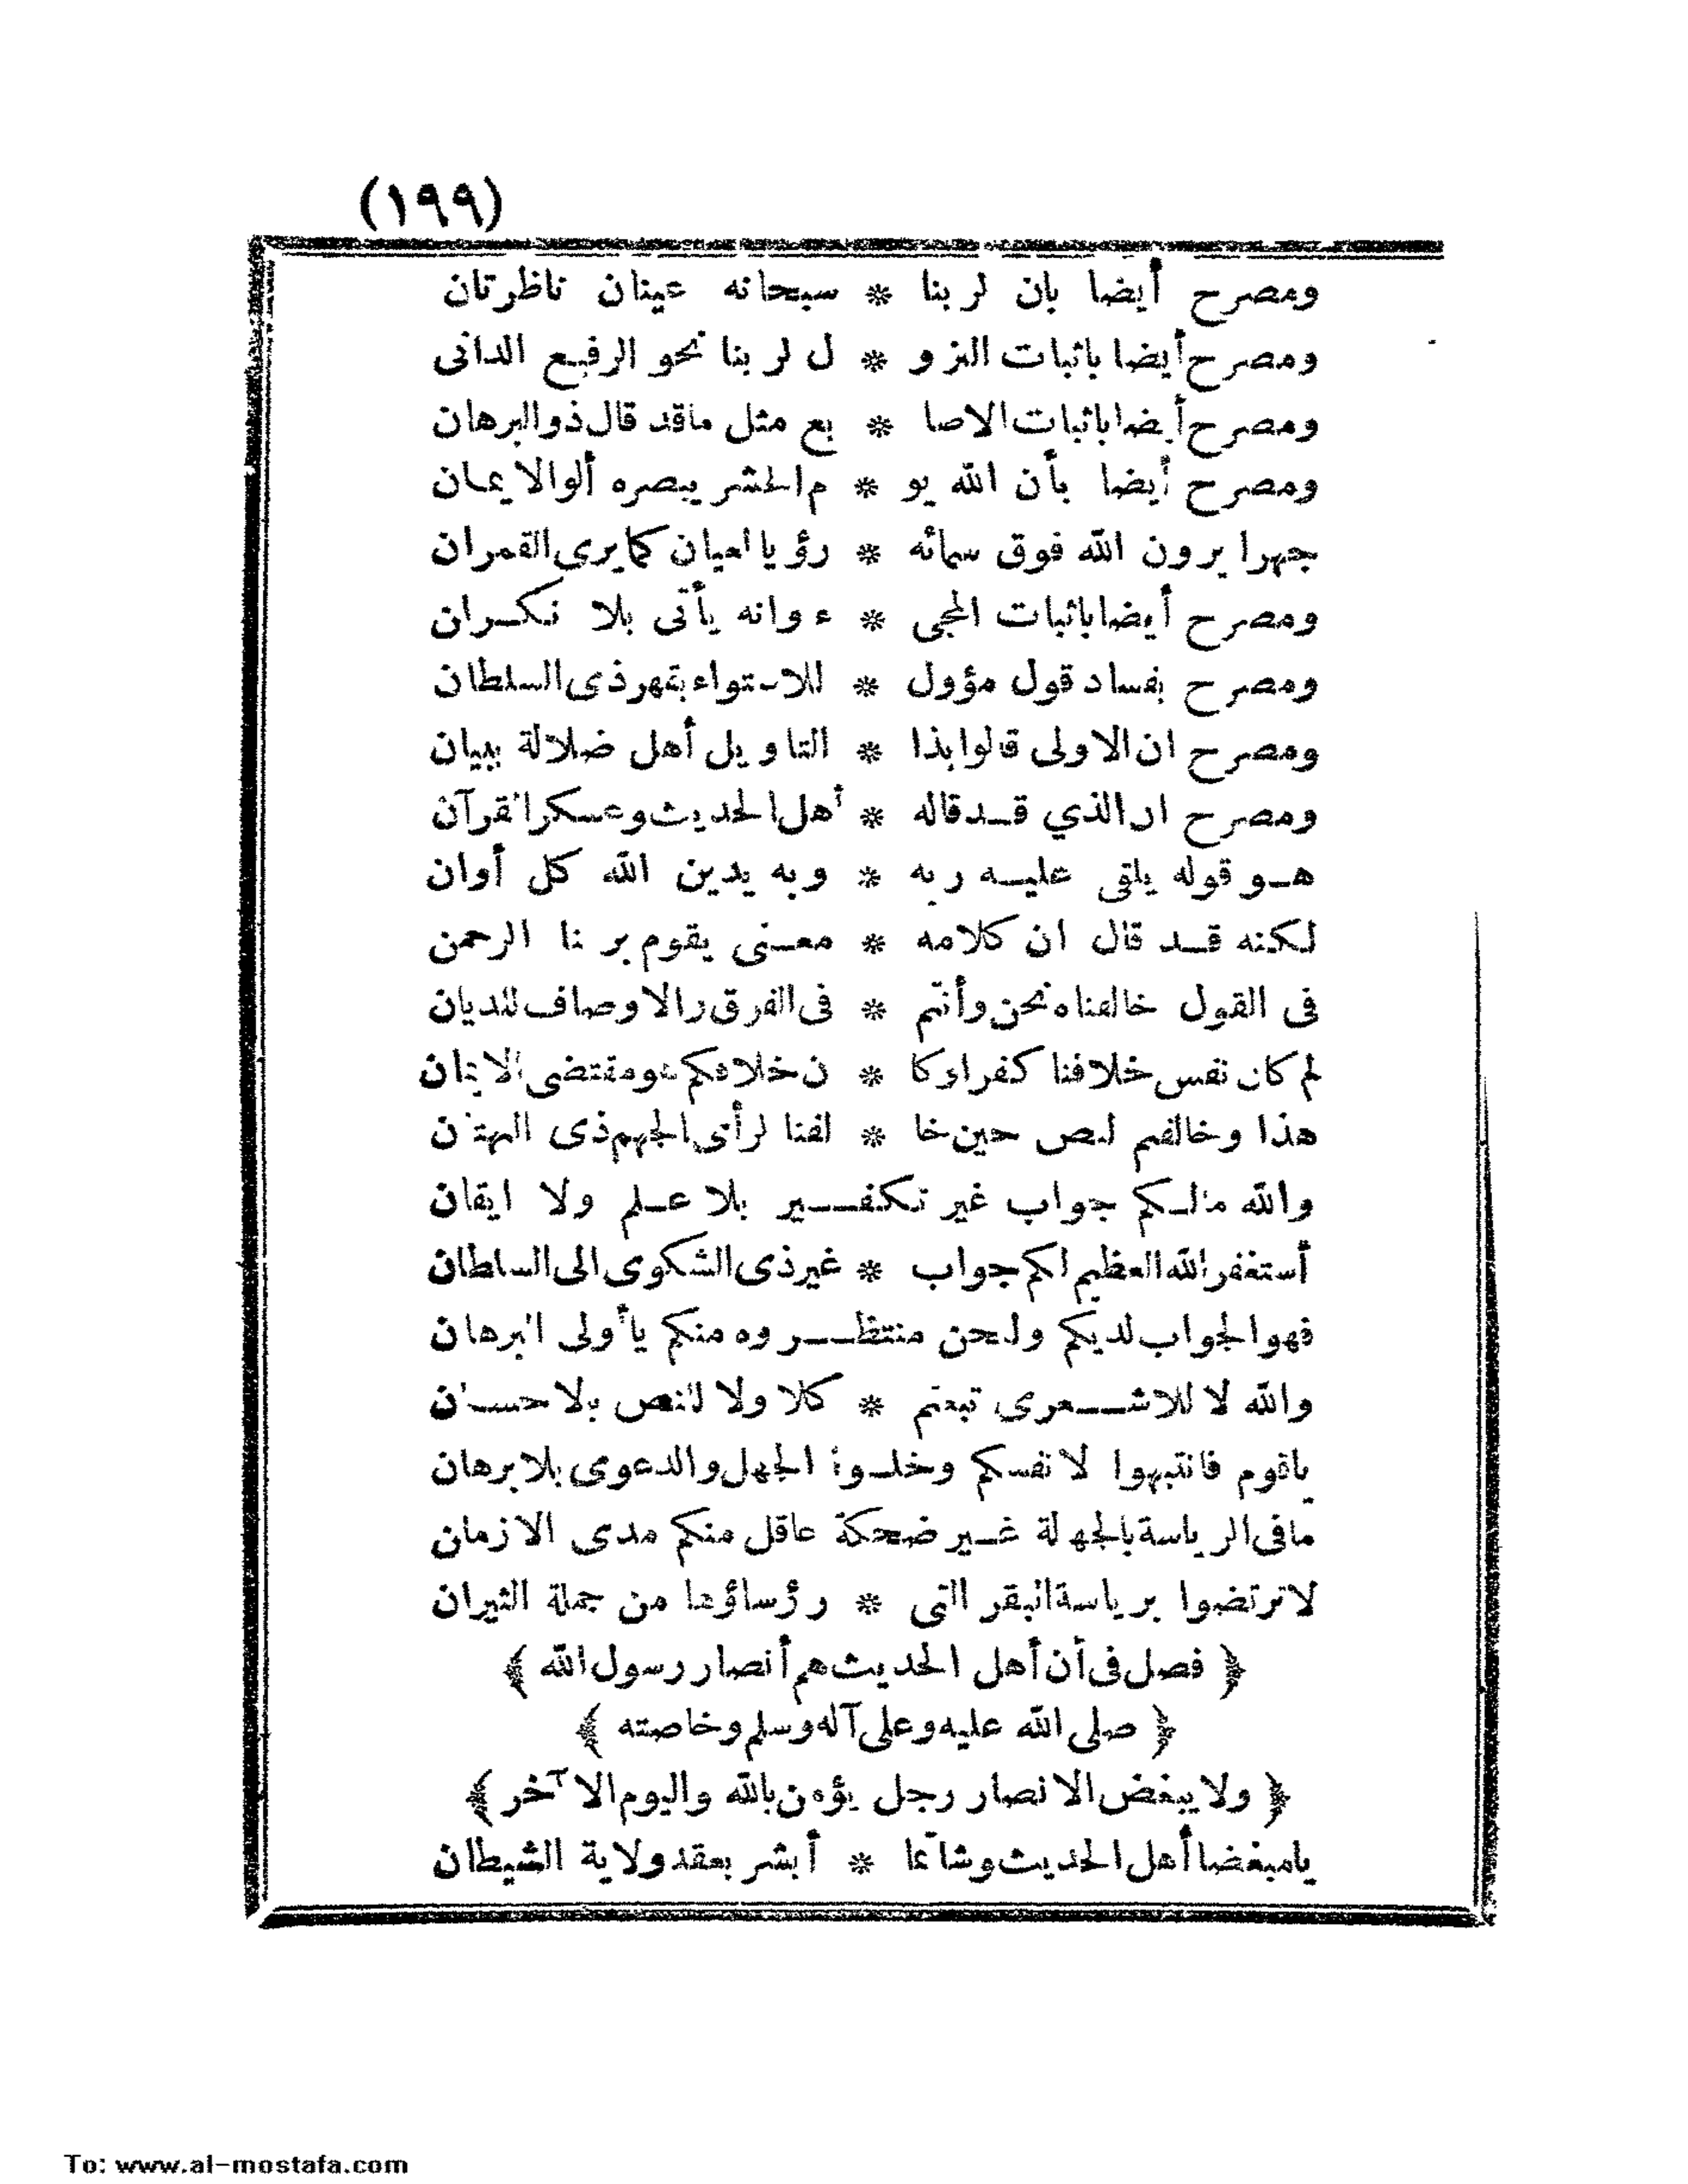 (١٩٩)
ومصرح أيضا بان لربنا * سبحانه عينان ناظرتان
ومصرح أيضا باثبات النزو * ل لربنا نحو الرفيع الدانى
ومصرح أيضا باثبات الاصا * بع مثل ماقد قال ذو البرهان
ومصرح أيضا بأن الله يو * م الحشر يبصره ألو الايمان
جهرا يرون الله فوق سمائه * رؤيا العيان كما يرى القمران
ومصرح أيضا باثبات المجى * ء وانه يأتى بلا نكران
ومصرح بفساد قول مؤول * للاستواء بقهر ذى السلطان
ومصرح ان الاولى قالوا بذا * التاويل أهل ضلالة ببيان
ومصرح ان الذي قد قاله * أهل الحديث وعسكر القرآن
هو قوله يلقى عليه ربه * وبه يدين الله كل أوان
لكنه قد قال ان كلامه * معنى يقوم بربنا الرحمن
فى القول خالفناه نحن وأنتم * فى الفرق والاوصاف للديان
لم كان نفس خلافنا كفرا وكا * ن خلافكم هو مقتضى الايمان
هذا وخالفتم لنص حين خا * لفنا لرأى الجهم ذى البهتان
والله مالكم جواب غير تكفير بلا علم ولا ايقان
أستغفر الله العظيم لكم جواب * غير ذى الشكوى الى السلطان
فهو الجواب لديكم ولنحن منتظروه منكم ياأولى البرهان
والله لا للاشعرى تبعتم * كلا ولا للنص بالاحسان
ياقوم فانتبهوا لانفسكم وخلوا الجهل والدعوى بلا برهان
مافى الرياسة بالجهالة غير ضحكة عاقل منكم مدى الازمان
لاترتضوا برياسة البقر التى * رؤساؤها من جملة الثيران
﴿ فصل فى أن أهل الحديث هم أنصار رسول الله ﴾
﴿ صلى الله عليه وعلى آله وسلم وخاصته ﴾
﴿ ولا يبغض الانصار رجل يؤمن بالله واليوم الآخر ﴾
يامبغضا أهل الحديث وشاتما * أبشر بعقد ولاية الشيطان
To: www.al-mostafa.com